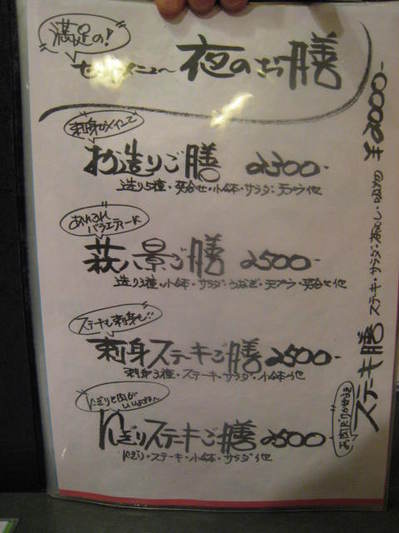 満足の!
セットメニュー 夜のご膳
刺身がメインで
お造りご膳 2300-
造り5種・炊合せ・小鉢・サラダ・天プラ他
あふれる
バラエティーに
萩八景ご膳 2500-
造り3種・小鉢・サラダ・うなぎ・天プラ・炊合せ他
ステーキも刺身も!!
刺身ステーキご膳 2500-
刺身3種・ステーキ・サラダ・小鉢他
にぎりと肉が
にぎりステーキご膳 2500
にぎり・ステーキ・小鉢・サラダ他
ステーキ膳 ステーキ・サラダ ¥2000-